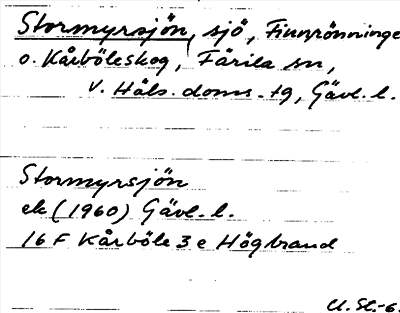 Stormyrsjön, sjö, Finnrönninge
o. Kårböleskog, Färila sn,
v. Häls. doms.-tg, Gävl. l.
Stormyrsjön
ek (1960) Gävl. l.
16 F Kårböle 3 e Högbrand